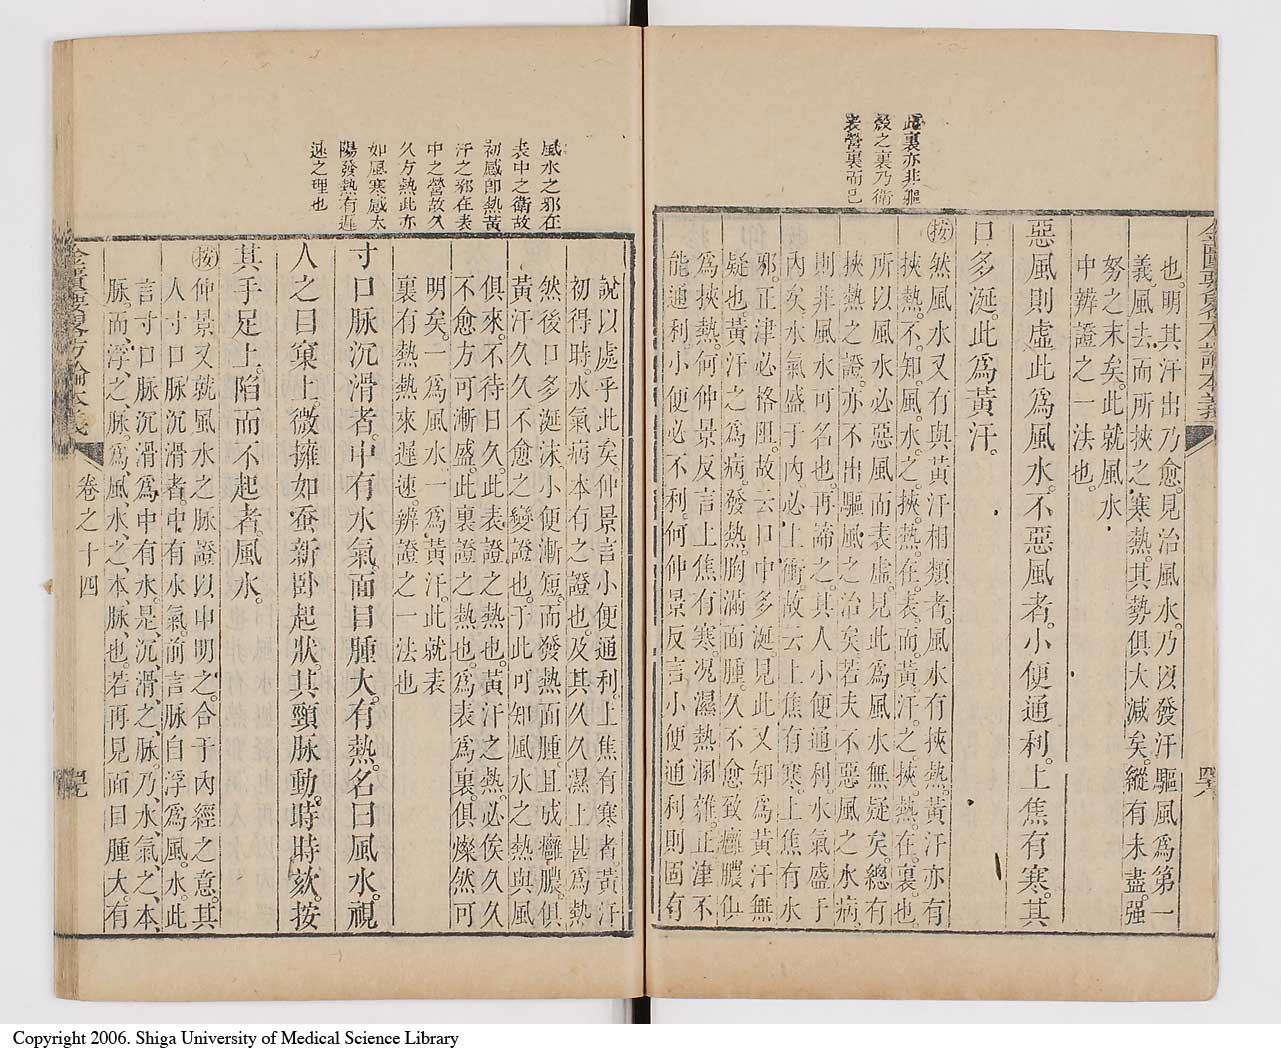 此裏亦非軀
殼之裏乃衛
表營裏而已
也。明其汗出乃愈。見治風水。乃以發汗驅風爲第一
義。風去而所挾之寒熱。其勢俱大減矣。縱有未盡。强
努之末矣。此就風水
中辨證之一法也。
惡風則虛。此爲風水。不惡風者。小便通利。上焦有寒。其
口多涎。此爲黃汗。
按然風水又有與黃汗相類者。風水有挾熱。黃汗亦有
挾熱。不知。風水之挾熱。在表。而黃汗之挾熱。在裏也。
所以風水必惡風而表虛。見此爲風水無疑矣。總有
挾熱之證。亦不出驅風之治矣。若夫不惡風之水病。
則非風水可名也。再諦之。其人小便通利。水氣盛于
內矣。水氣盛于內。必上衝。故云上焦有寒。上焦有水
邪。正津必格阻。故云口中多涎。見此又知爲黃汗無
疑也。黃汗之爲病。發熱。胸滿面腫。久不愈致癰膿。俱
爲挾熱。何仲景反言上焦有寒。况濕熱溷雜。正津不
能通利。小便必不利。何仲景反言小便通利。則固有
金匱要畧方論本義
四八
風水之邪在
表中之衛故
初感卽熱黃
汗之邪在表
中之營故久
久方熱此亦
如風寒感太
陽發熱有遲
速之理也
說以處乎此矣。仲景言小便通利。上焦有寒者。黃汗
初得時。水氣病本有之證也。及其久久濕上甚爲熱
然後口多涎沫。小便漸短。而發熱而腫且成癰膿。俱
黃汗久久不愈之變證也。于此可知風水之熱與風
俱來。不待日久。此表證之熱也。黃汗之熱。必俟久久
不愈方可漸盛。此裏證之熱也。爲表爲裏俱燦然可
明矣。一爲風水。一爲黃汗。此就表
裏有熱熱來遲速辨證之一法也
寸口脉沉滑者。中有水氣。面目腫大。有熱。名曰風水。視
人之目窠上。微擁如蚕新卧起狀。其頸脉動。時時欬。按
其手足上。陷而不起者。風水。
按仲景又就風水之脉證以申明之。合于內經之意。其
人寸口脉沉滑者。中有水氣。前言脉自浮爲風水。此
言寸口脉沉滑爲中有水。是沉滑之脉。乃水氣之本
脉。而浮之脉。爲風水之本脉也。若再見面目腫大。有
金匱要畧方論本義
卷之十四
四九
Copyright 2006. Shiga University of Medical Science Library